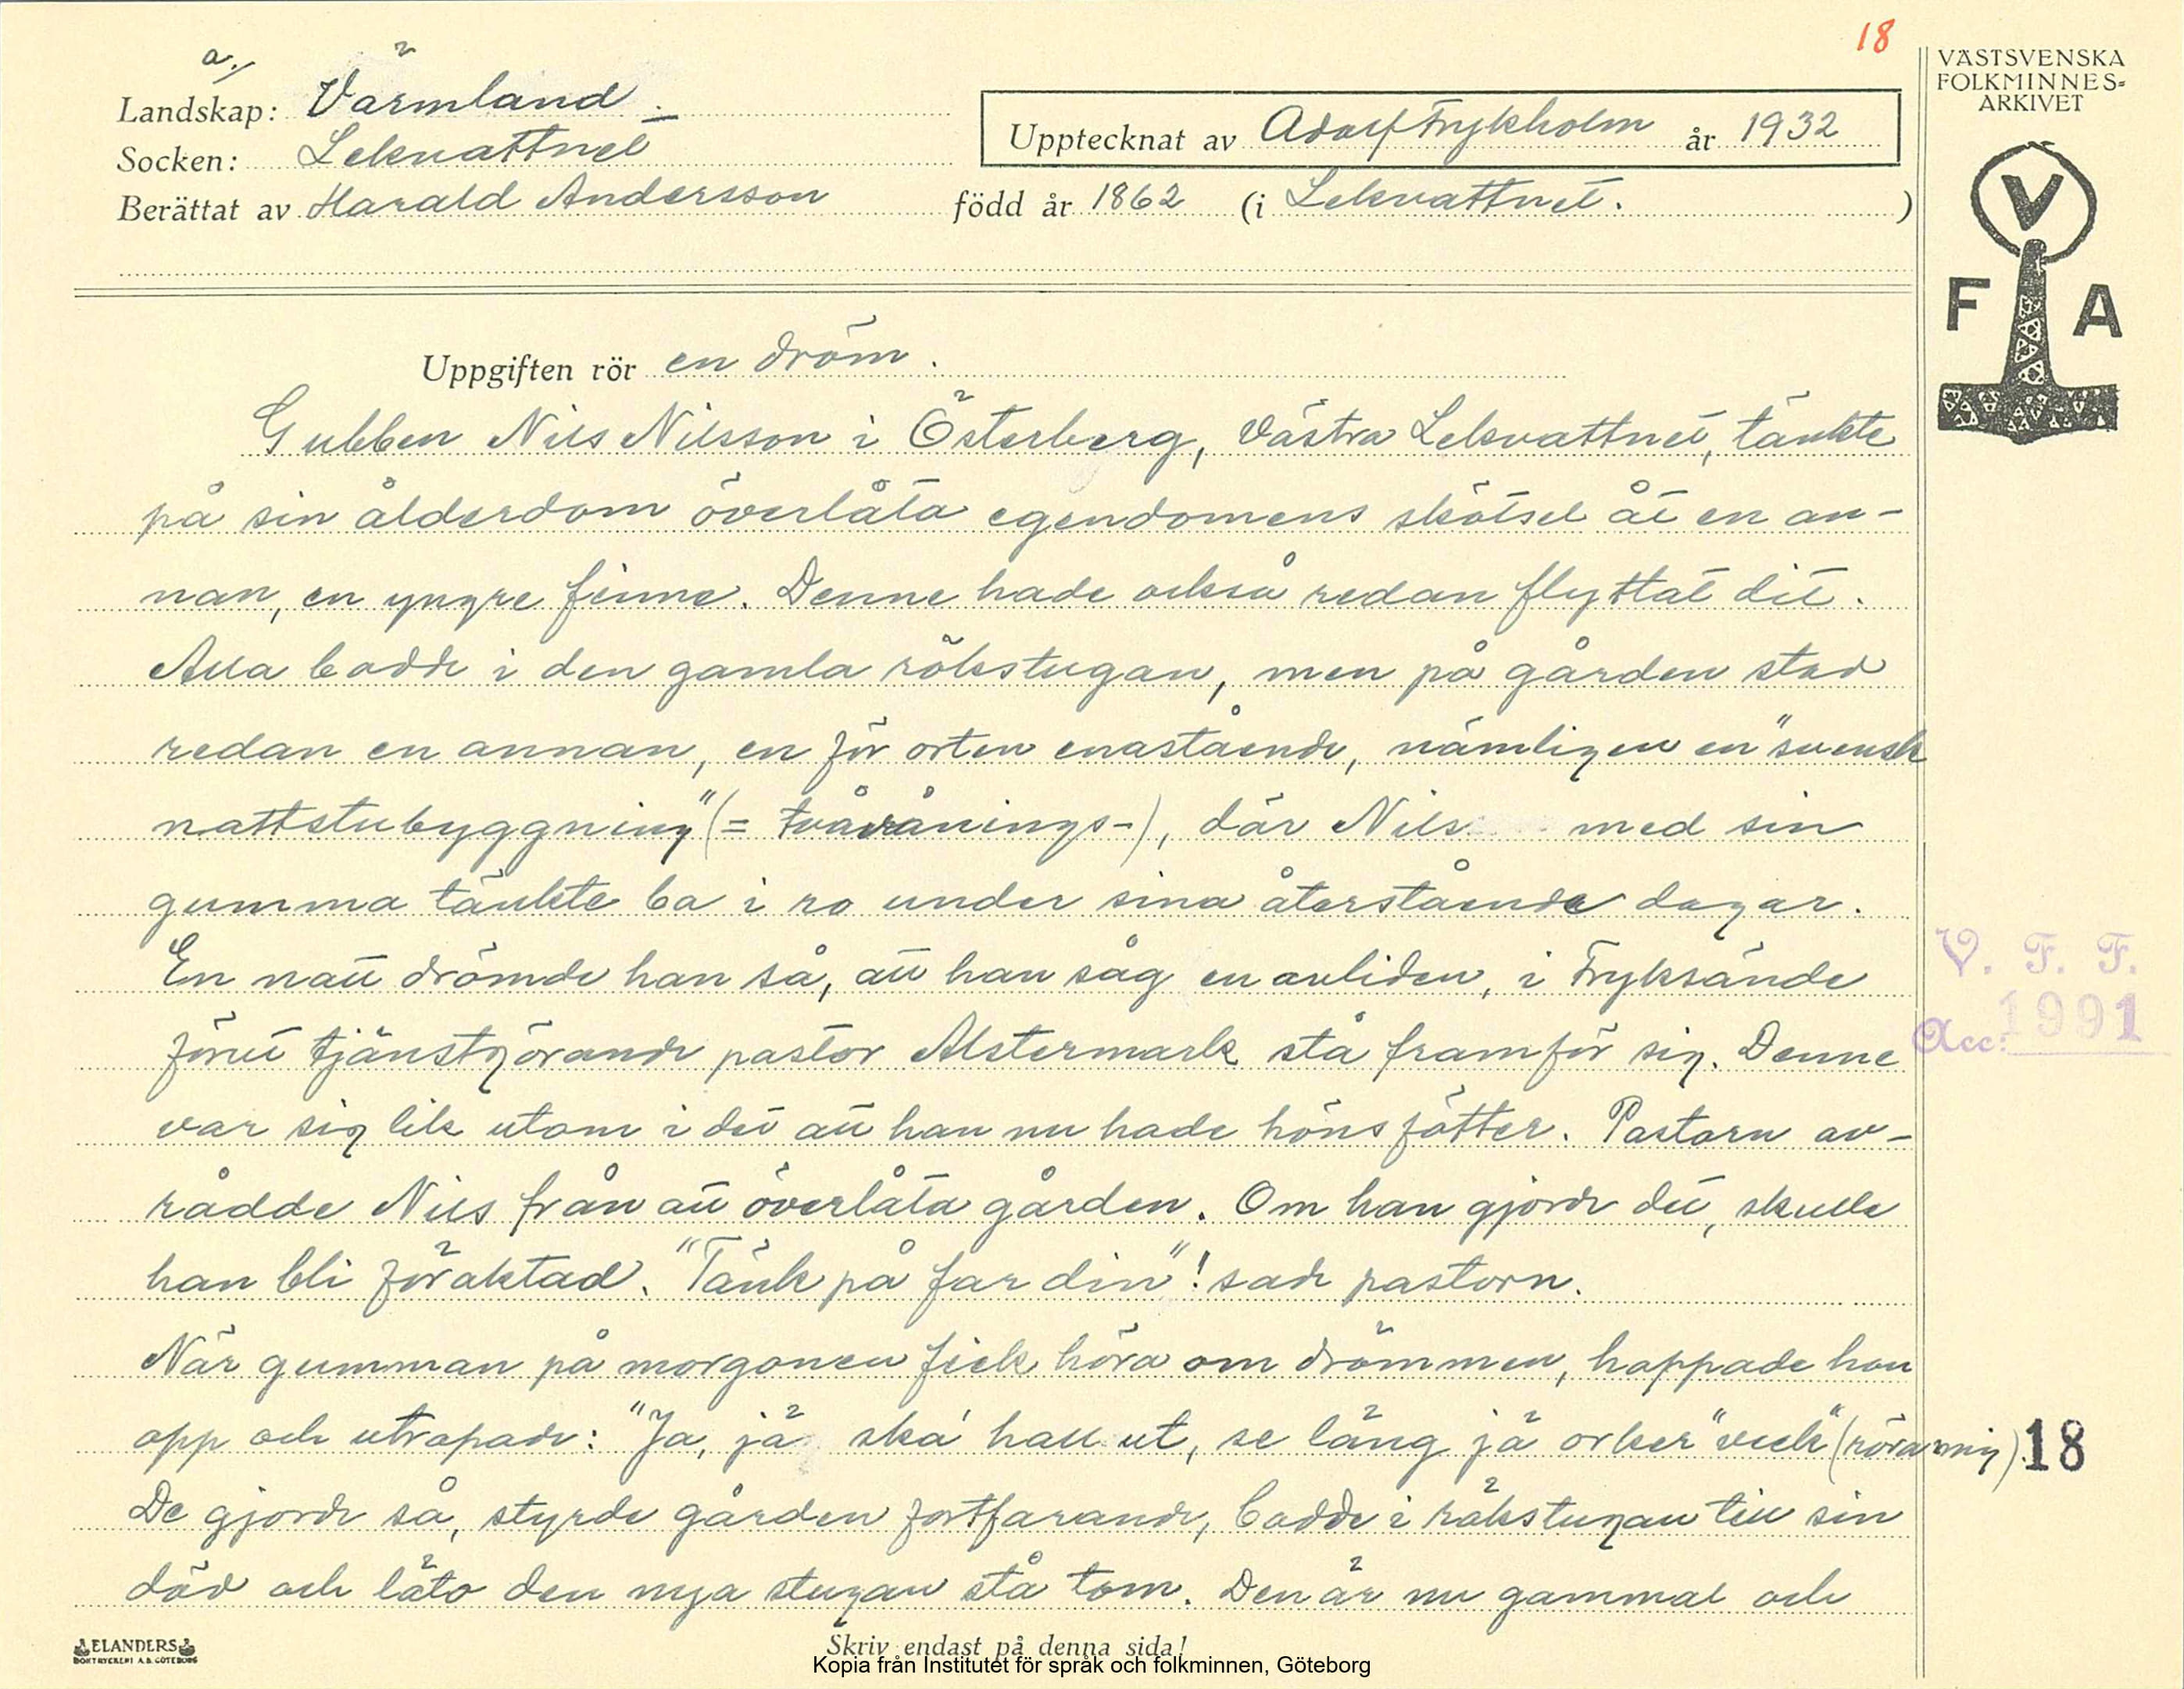 18
a./
Landskap: Värmland.
Socken: Lekvattnet
Berättat av Harald Andersson född år 1862 (i Lekvattnet. )
Upptecknat av Adolf Frykholm år 1932
VÄSTSVENSKA
FOLKMINNES-
ARKIVET
V
F A
Uppgiften rör en dröm.
Gubben Nils Nilsson i Österberg, västra Lekvattnet, tänkte
på sin ålderdom överlåta egendomens skötsel åt en an-
nan, en yngre finne. Denne hade också redan flyttat dit.
Alla bodde i den gamla rökstugan, men på gården stod
redan en annan, en för orten enastående, nämligen en "svensk
nattstubyggning" (= tvåvånings-), där Nils med sin
gumma tänkte bo i ro under sina återstående dagar.
En natt drömde han så, att han såg en avliden, i Fryksände
förut tjänstgörande pastor Alstermark stå framför sig. Denne
var sig lik utom i det att han nu hade hönsfötter. Pastorn av-
rådde Nils från att överlåta gården. Om han gjorde det, skulle
han bli föraktad. "Tänk på far din"! sade pastorn.
När gumman på morgonen fick höra om drömmen, hoppade hon
opp och utropade: "Ja, jä ska' hall ut, se läng jä orker "veck" (röra mig).
De gjorde så, styrde gården fortfarande, bodde i rökstugan till sin
död och läto den nya stugan stå tom. Den är nu gammal och
V. F. F.
Acc: 1991
18
ELANDERS
BOKTRYCKERI A.B. GÖTEBORG
Skriv endast på denna sida!
Kopia från Institutet för språk och folkminnen, Göteborg